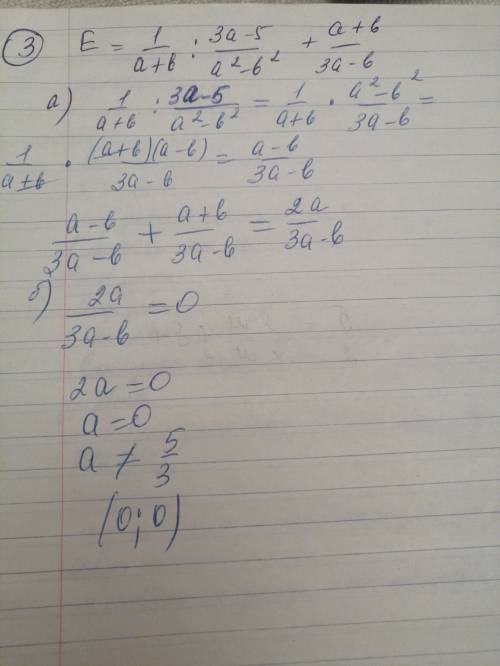 ③ E = 1/(a+b) : (3a-5)/(a²-b²) + (a+b)/(3a-b)
а) 1/(a+b) : (3a-5)/(a²-b²) = 1/(a+b) · (a²-b²)/(3a-b) =
1/(a+b) · (a+b)(a-b)/(3a-b) = (a-b)/(3a-b)
(a-b)/(3a-b) + (a+b)/(3a-b) = 2a/(3a-b)
б) 2a/(3a-b) = 0
2a = 0
a = 0
a ≠ 5/3
(0;0)